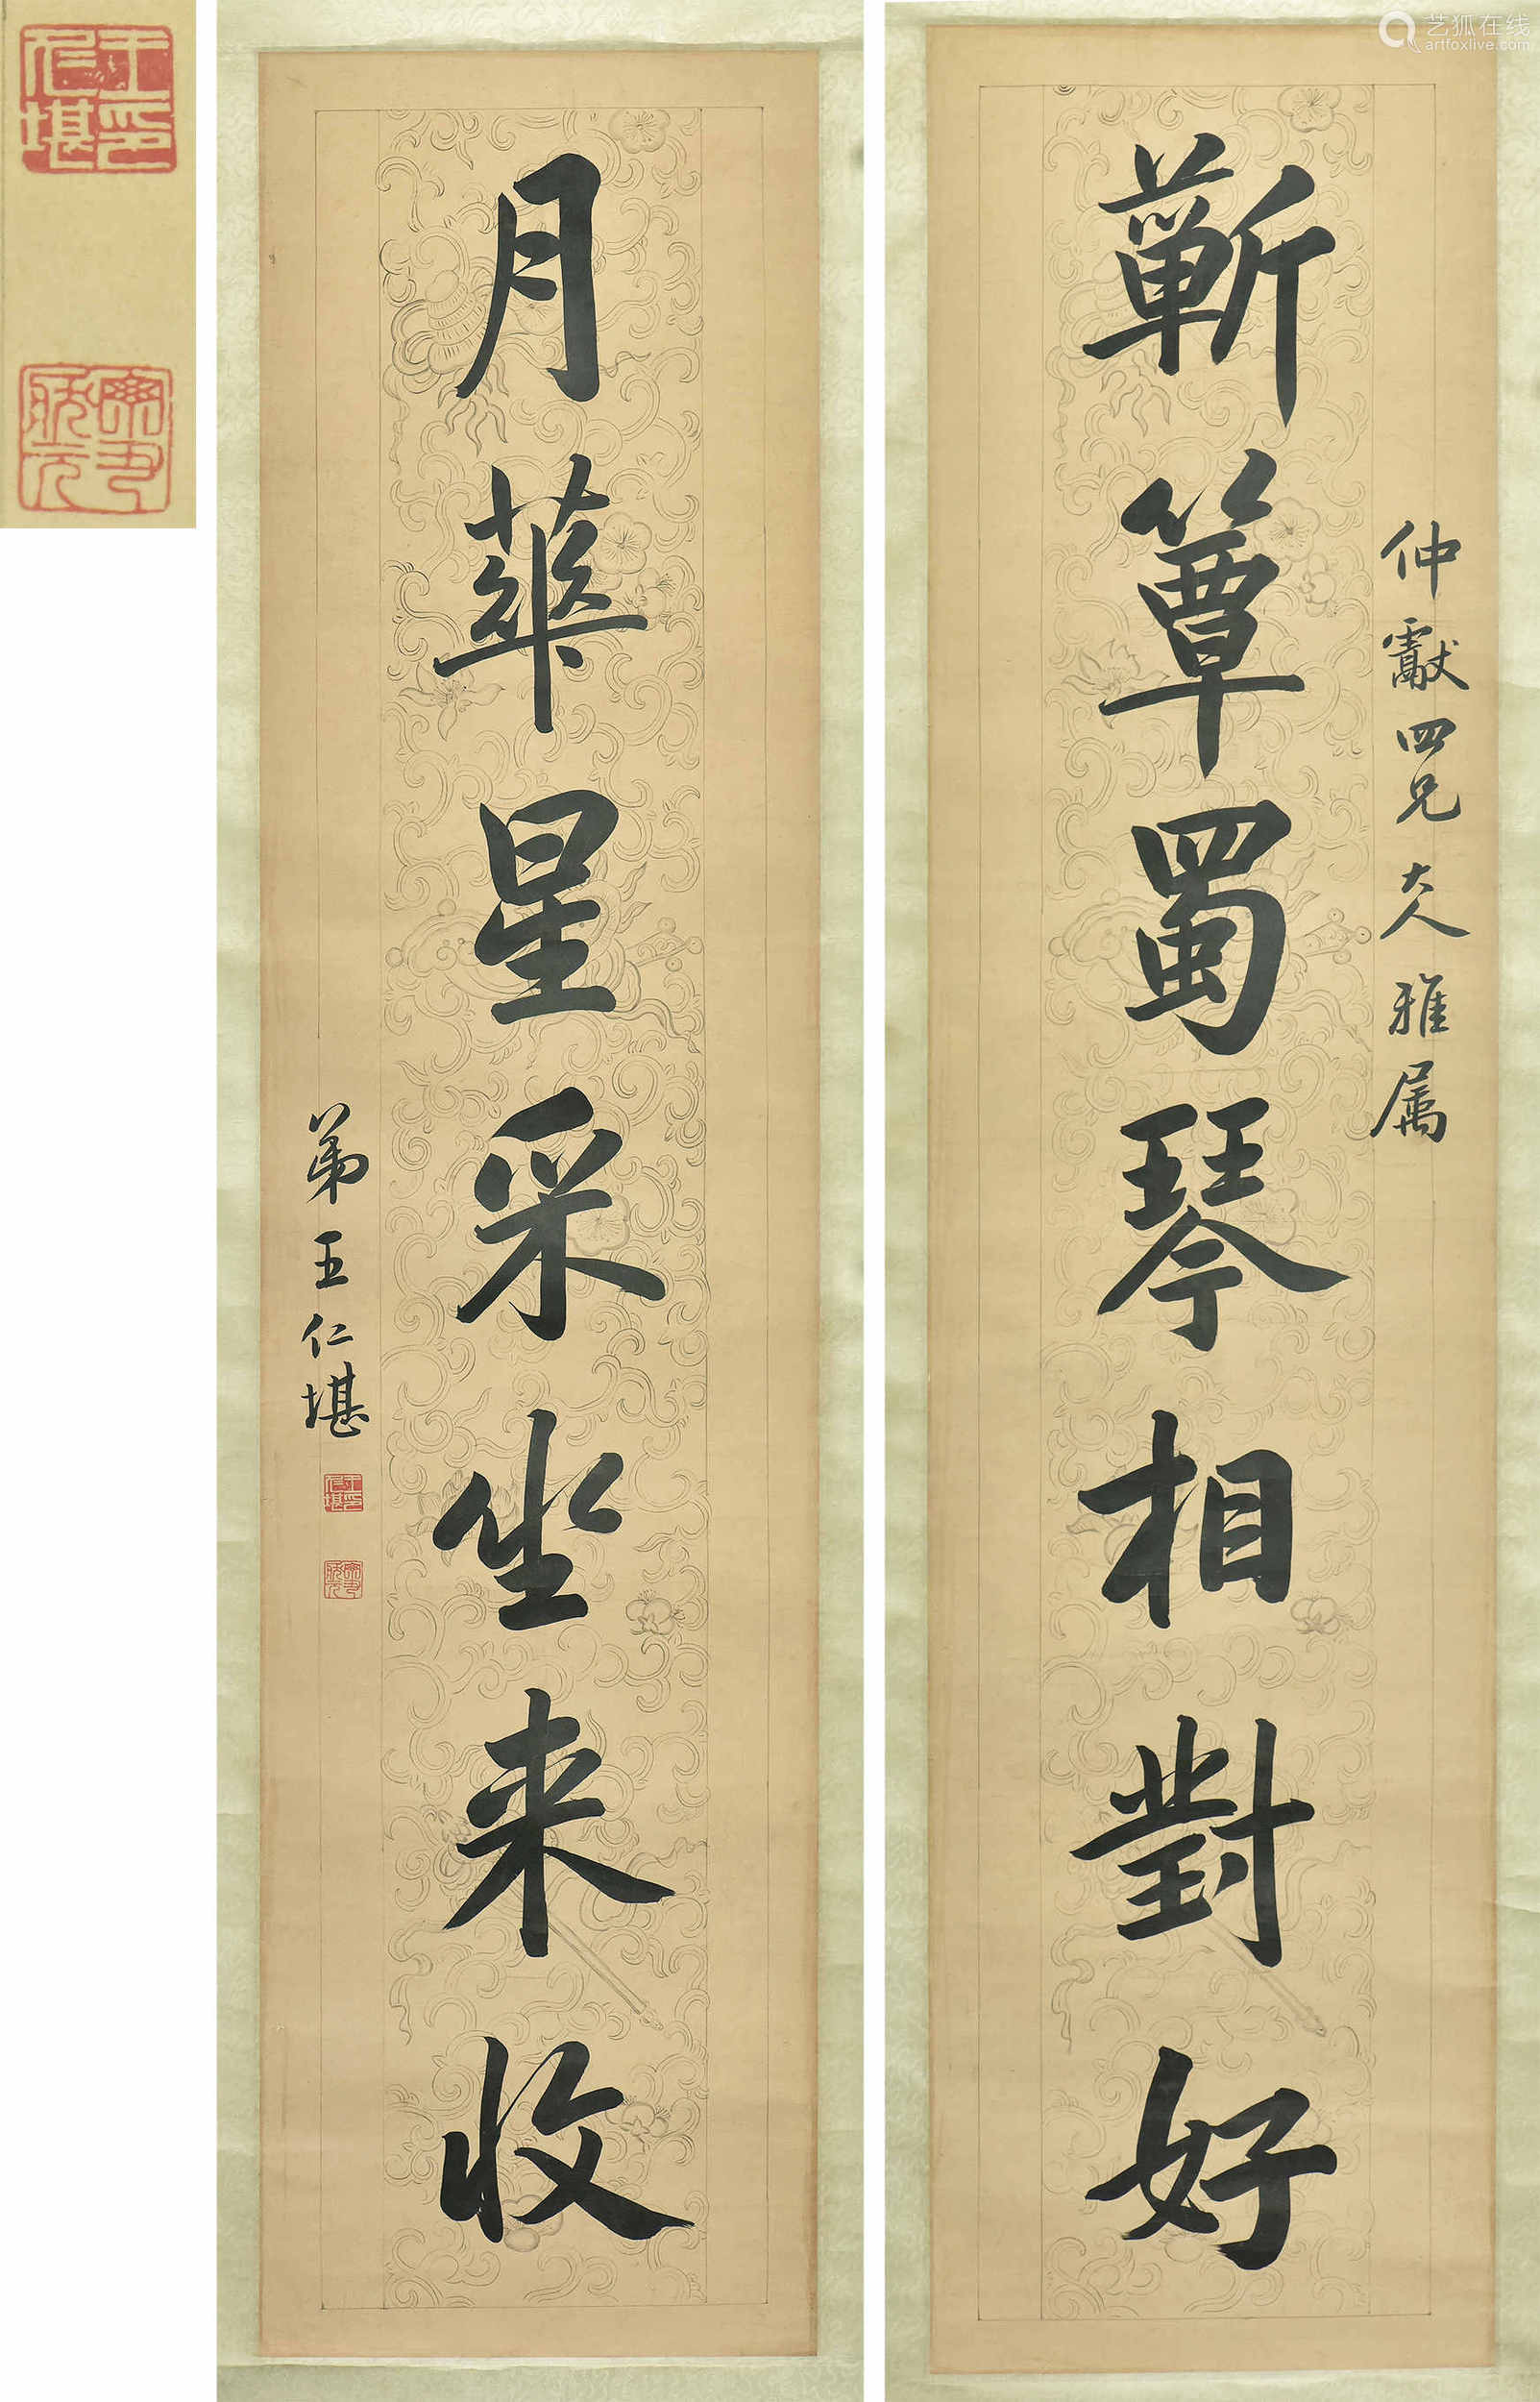 蘄簟蜀琴相對好
仲獻四兄大人雅属
月華星采坐来收
弟王仁堪
王仁堪印
艺狐在线
artfoxlive.com